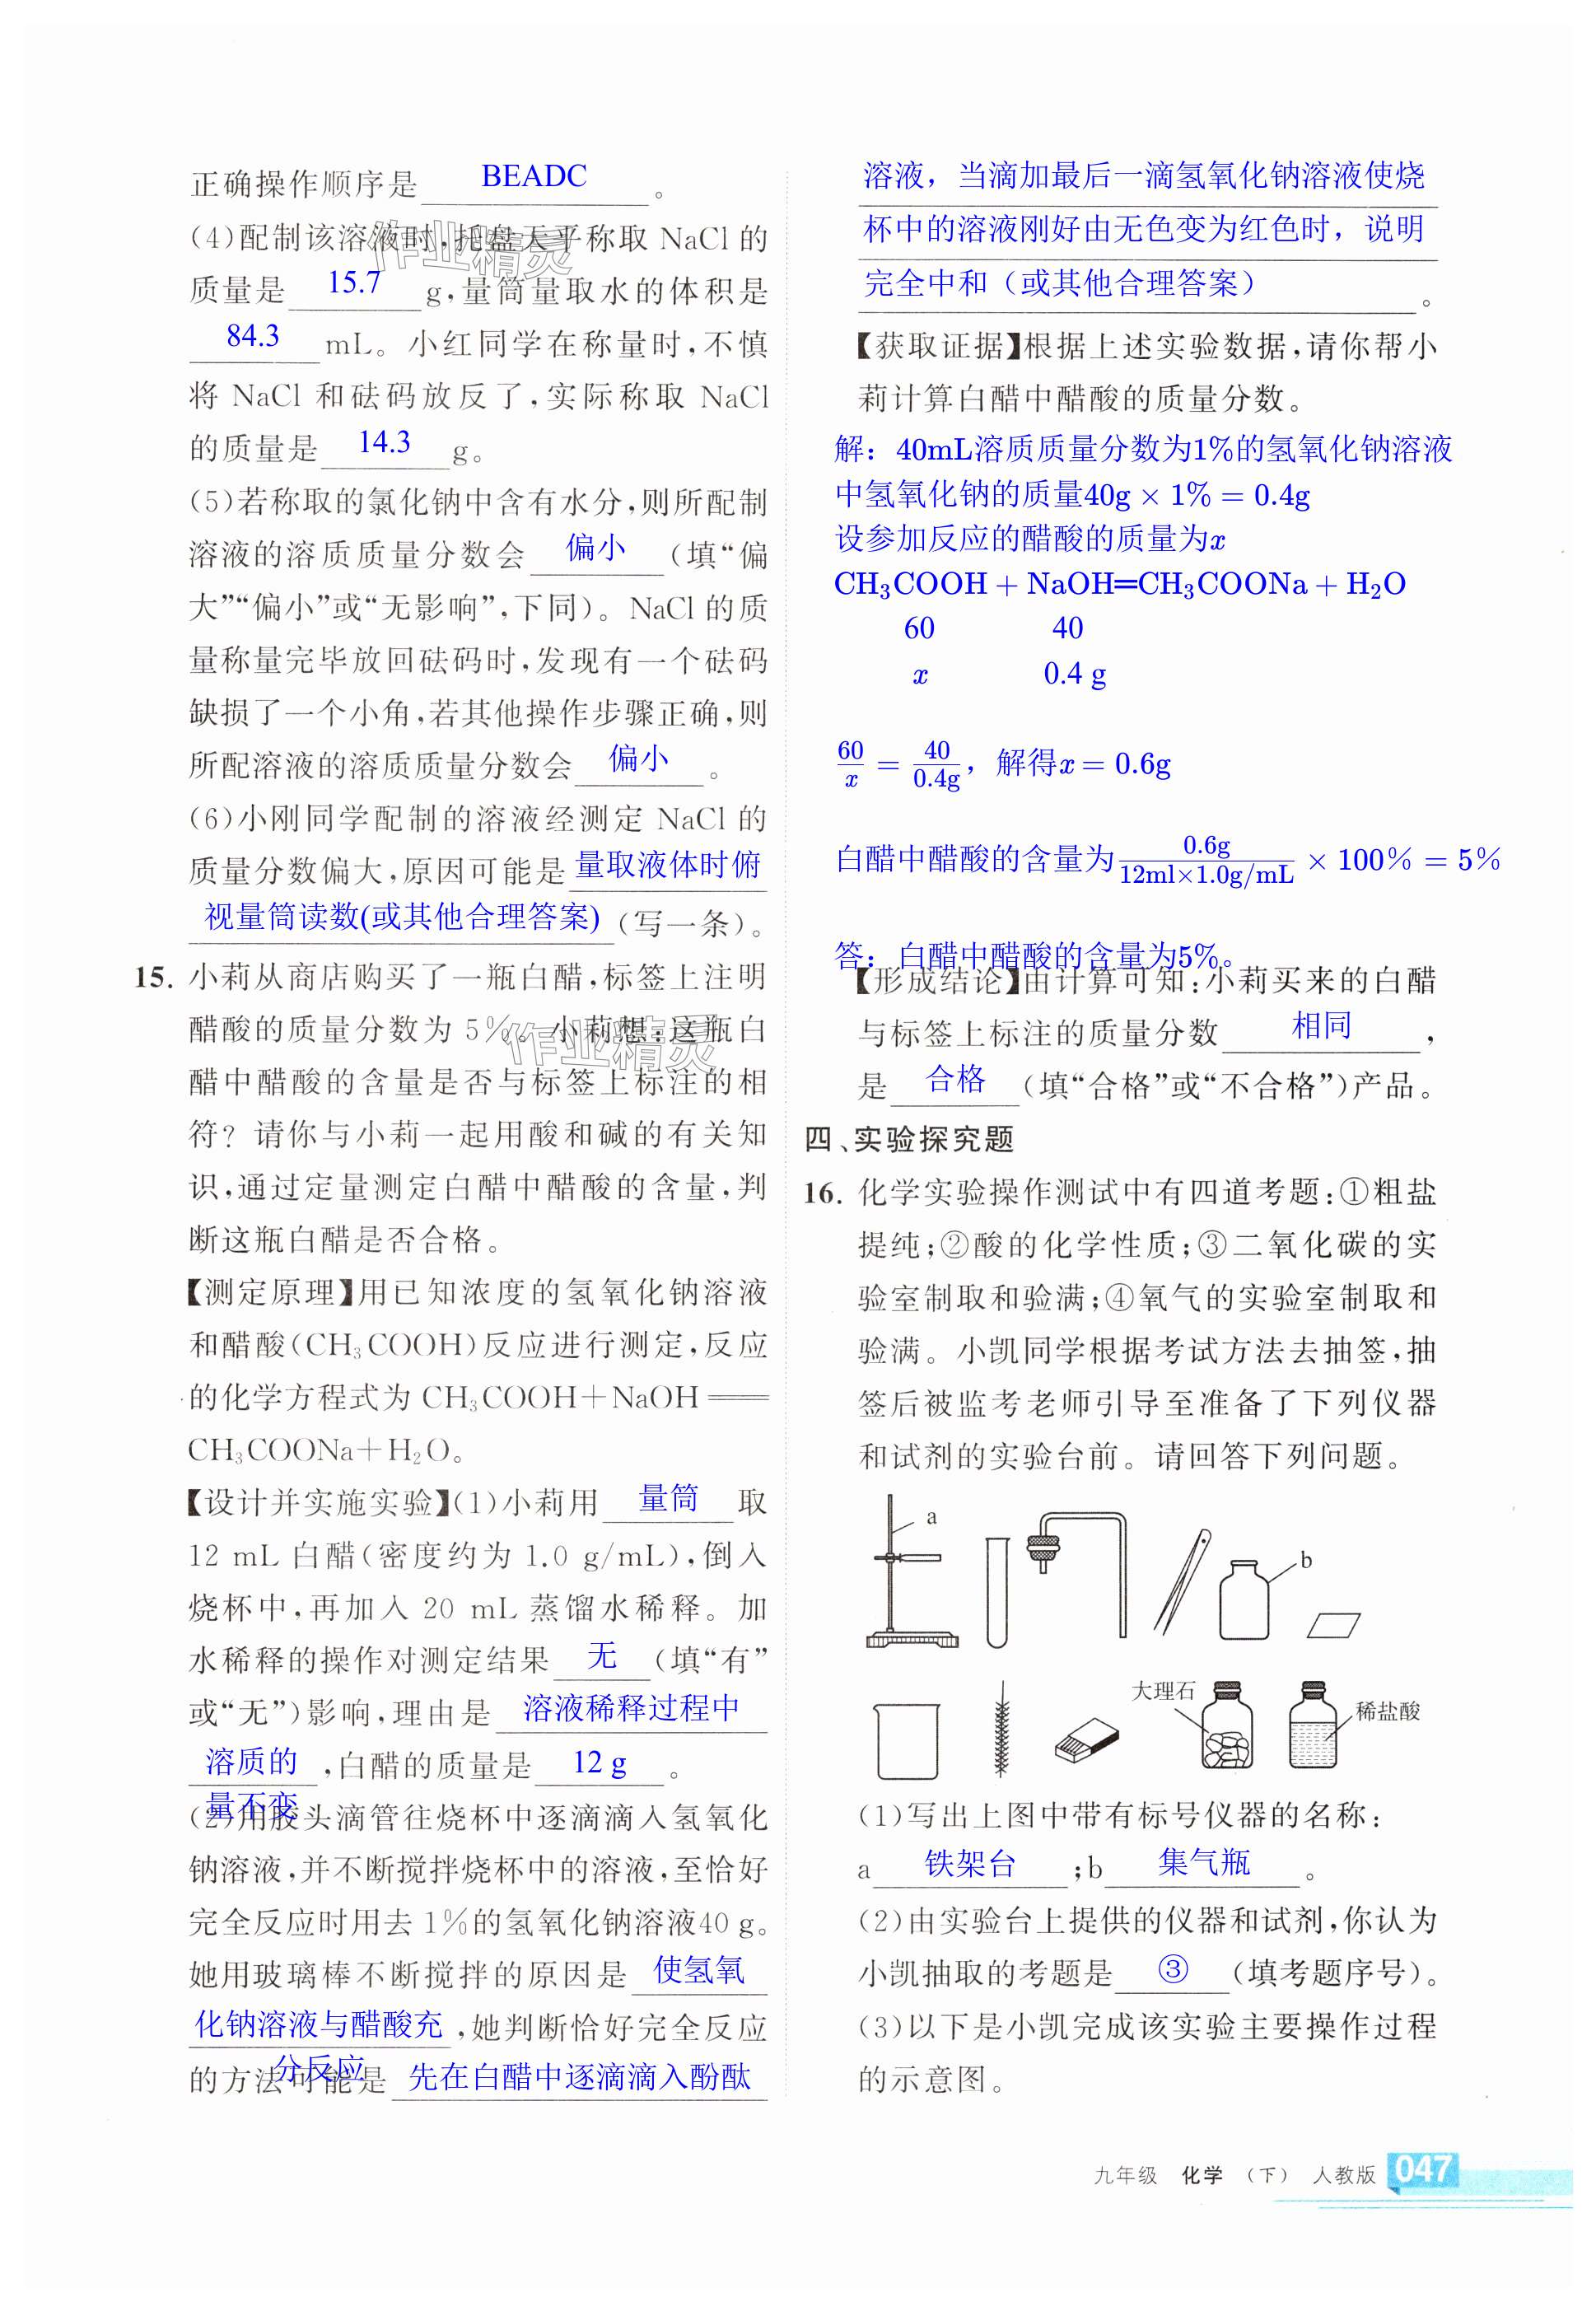 正确操作顺序是 BEADC 。
(4)配制该溶液时,托盘天平称取 NaCl 的
质量是 15.7 g,量筒量取水的体积是
84.3 mL。小红同学在称量时,不慎
将 NaCl 和砝码放反了,实际称取 NaCl
的质量是 14.3 g。
(5)若称取的氯化钠中含有水分,则所配制
溶液的溶质质量分数会 偏小 (填“偏
大”“偏小”或“无影响”,下同)。NaCl 的质
量称量完毕放回砝码时,发现有一个砝码
缺损了一个小角,若其他操作步骤正确,则
所配溶液的溶质质量分数会 偏小 。
(6)小刚同学配制的溶液经测定 NaCl 的
质量分数偏大,原因可能是 量取液体时俯
视量筒读数(或其他合理答案) (写一条)。
15. 小莉从商店购买了一瓶白醋,标签上注明
醋酸的质量分数为 5%。小莉想:这瓶白
醋中醋酸的含量是否与标签上标注的相
符?请你与小莉一起用酸和碱的有关知
识,通过定量测定白醋中醋酸的含量,判
断这瓶白醋是否合格。
【测定原理】用已知浓度的氢氧化钠溶液
和醋酸(CH₃COOH)反应进行测定,反应
的化学方程式为 CH₃COOH+NaOH══
CH₃COONa+H₂O。
【设计并实施实验】(1)小莉用 量筒 取
12 mL 白醋(密度约为 1.0 g/mL),倒入
烧杯中,再加入 20 mL 蒸馏水稀释。加
水稀释的操作对测定结果 无 (填“有”
或“无”)影响,理由是 溶液稀释过程中
溶质的 ,白醋的质量是 12 g 。
量不变
(2)用胶头滴管往烧杯中逐滴滴入氢氧化
钠溶液,并不断搅拌烧杯中的溶液,至恰好
完全反应时用去 1%的氢氧化钠溶液40 g。
她用玻璃棒不断搅拌的原因是 使氢氧
化钠溶液与醋酸充 ,她判断恰好完全反应
分反应
的方法可能是 先在白醋中逐滴滴入酚酞
溶液，当滴加最后一滴氢氧化钠溶液使烧
杯中的溶液刚好由无色变为红色时，说明
完全中和（或其他合理答案） 。
【获取证据】根据上述实验数据,请你帮小
莉计算白醋中醋酸的质量分数。
解：40mL溶质质量分数为1%的氢氧化钠溶液
中氢氧化钠的质量40g × 1% = 0.4g
设参加反应的醋酸的质量为x
CH₃COOH + NaOH═CH₃COONa + H₂O
60 40
x 0.4 g
60/x = 40/0.4g，解得x = 0.6g
白醋中醋酸的含量为 0.6g/12ml×1.0g/mL × 100% = 5%
答：白醋中醋酸的含量为5%。
【形成结论】由计算可知:小莉买来的白醋
与标签上标注的质量分数 相同 ,
是 合格 (填“合格”或“不合格”)产品。
四、实验探究题
16. 化学实验操作测试中有四道考题:①粗盐
提纯;②酸的化学性质;③二氧化碳的实
验室制取和验满;④氧气的实验室制取和
验满。小凯同学根据考试方法去抽签,抽
签后被监考老师引导至准备了下列仪器
和试剂的实验台前。请回答下列问题。
a
b
大理石
稀盐酸
(1)写出上图中带有标号仪器的名称:
a 铁架台 ;b 集气瓶 。
(2)由实验台上提供的仪器和试剂,你认为
小凯抽取的考题是 ③ (填考题序号)。
(3)以下是小凯完成该实验主要操作过程
的示意图。
九年级 化学 (下) 人教版 047
作业精灵
作业精灵